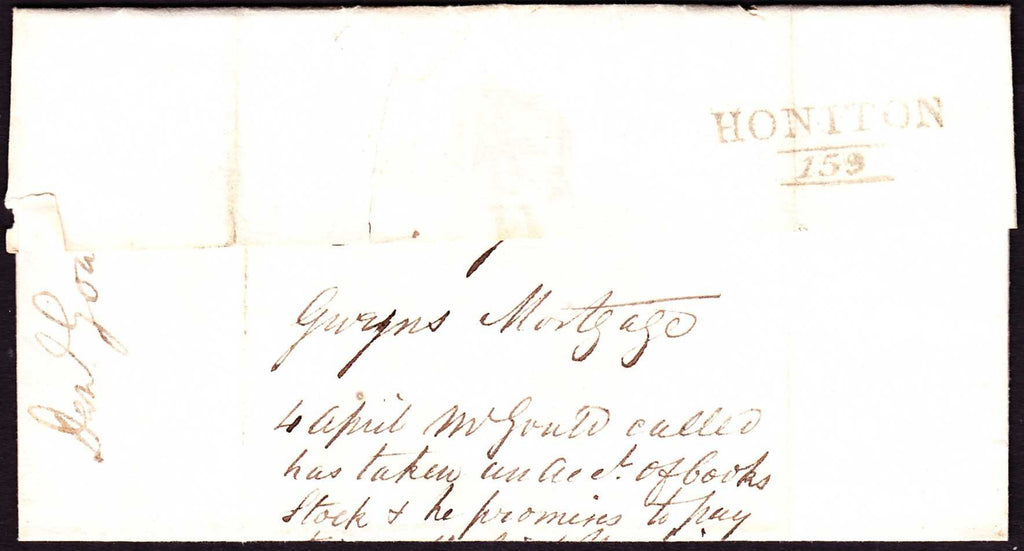 HONITON
159
Gwyns Mortgage
4 April Mr Gould called
has taken an acct. of books
Stock & he promises to pay